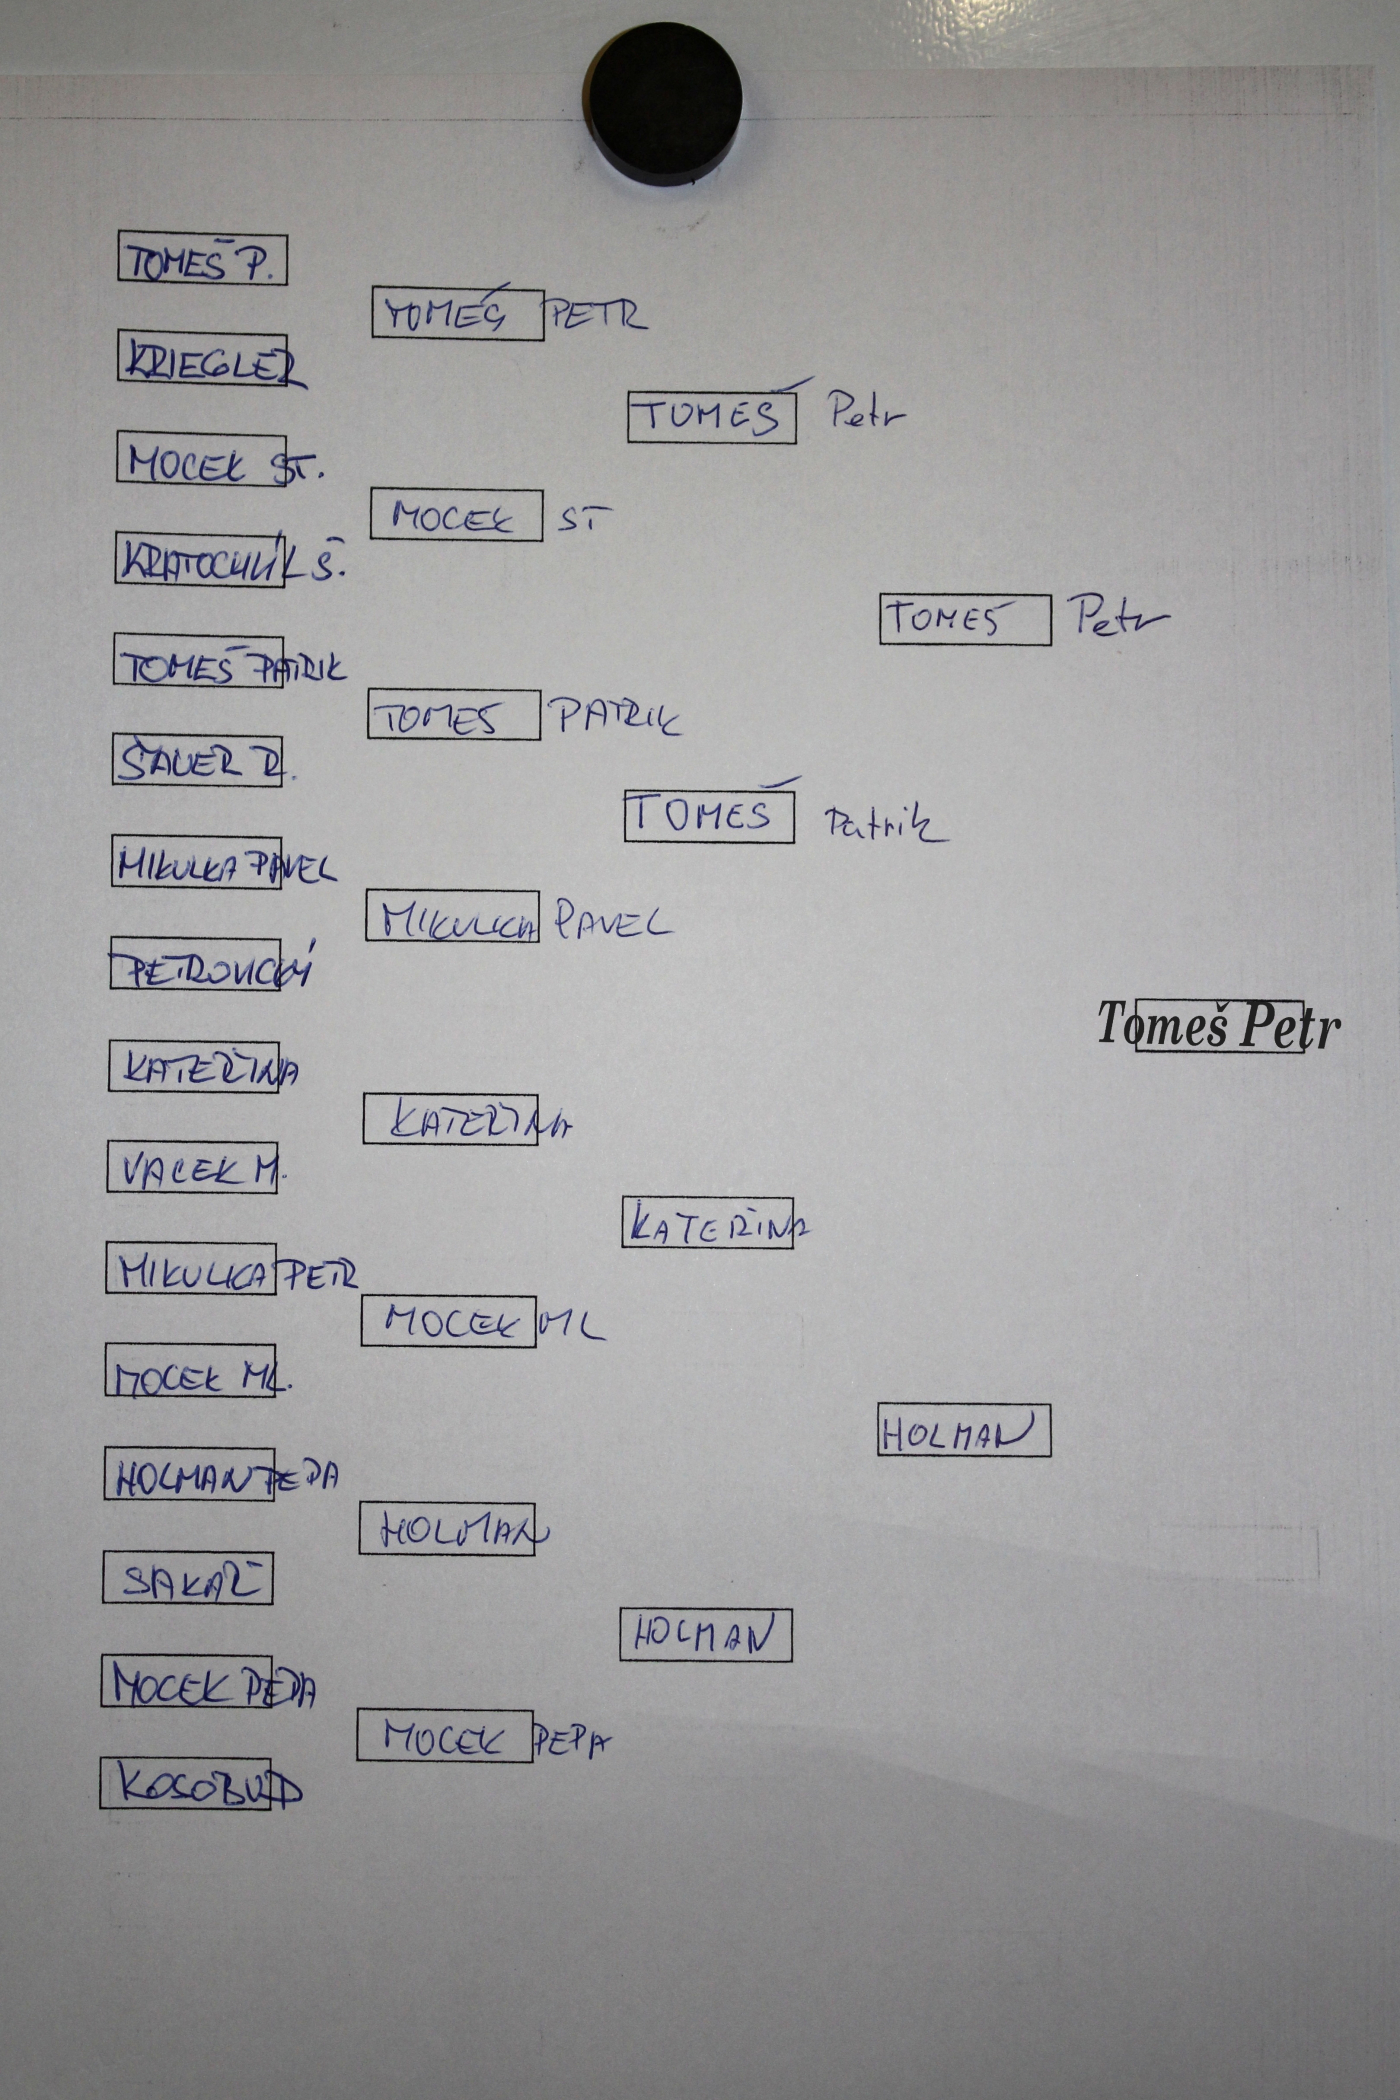 TOMEŠ P.
TOMEŠ PETR
KRIEGLER
TOMEŠ Petr
MOCEK ST.
MOCEK ST
KRATOCHVÍL Š.
TOMES Petr
TOMEŠ PATRIK
TOMES PATRIK
ŠAUER R.
TOMEŠ Patrik
MIKULKA PAVEL
MIKULKA PAVEL
PETROVICKÝ
Tomeš Petr
KATEŘINA
KATEŘINA
VACEK M.
KATEŘINA
MIKULKA PETR
MOCEK ML
MOCEK ML.
HOLMAN
HOLMAN PEPA
HOLMAN
SAKAŘ
HOLMAN
MOCEK PEPA
MOCEK PEPA
KOSOBUD